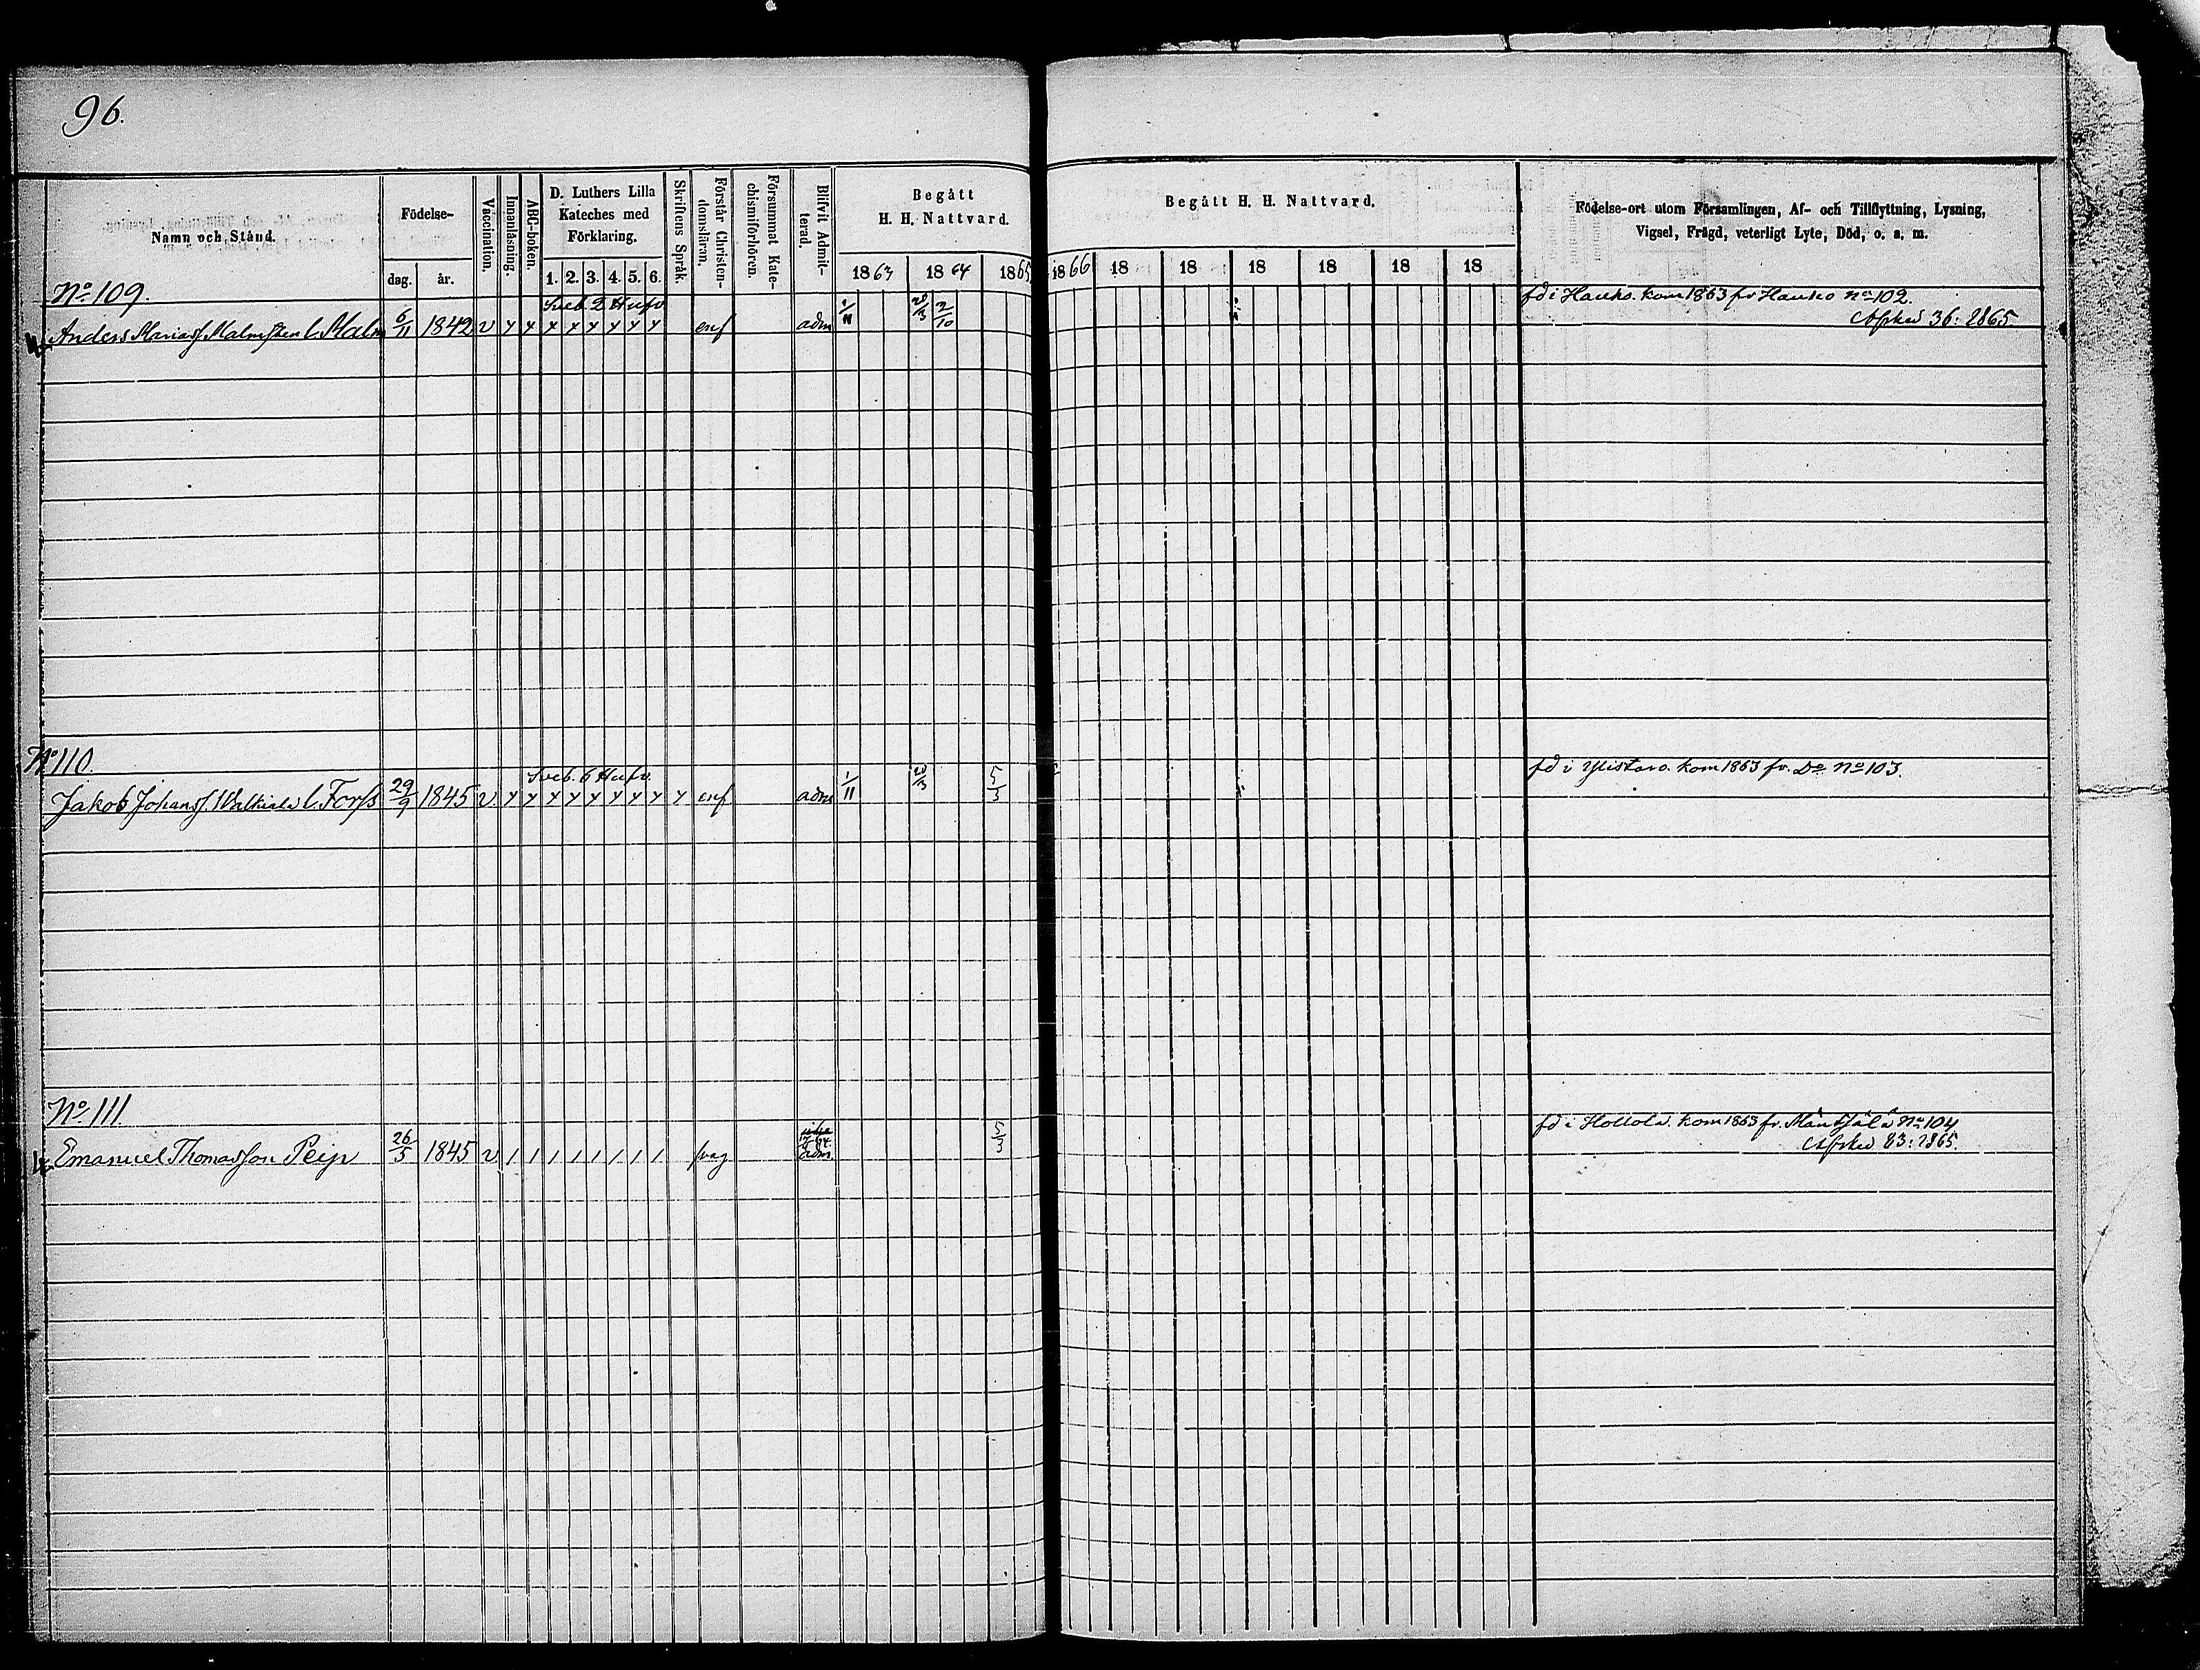 96.
Namn och Stånd.
Födelse-
dag. år.
Vaccination.
Innanläsning.
ABC-boken.
D. Luthers Lilla
Kateches med
Förklaring.
1. 2. 3. 4. 5. 6.
Skriftens Språk.
Förstår Christen-
domsläran.
Försummat Kate-
chismiförhören.
Blifvit Admit-
terad.
Begått
H. H. Nattvard.
1863 1864 1865
Begått H. H. Nattvard.
1866 18 18 18 18 18 18
Födelse-ort utom Församlingen, Af- och Tillflyttning, Lysning,
Vigsel, Frägd, veterligt Lyte, Död, o. s. m.
No 109.
Sveb. 2 Hufv.
fd i Hauho. kom 1863 fr Hauho No 102.
Anders Mariass. Malmsten l. Malm 6/11 1842 v y y y y y y y y enf adm 1/11 20/3 2/10
Afsked 36: 1865.
No 110.
Sveb. 6 Hufv.
fd i Ylistaro. kom 1863 fr. Do No 103.
Jakob Johanss. l. Forss 29/9 1845 v y y y y y y y y y enf adm 1/11 20/3 5/3
No 111.
fd i Hollola. kom 1863 fr. Mäntsälä No 104
Emanuel Thomasson Peip 26/5 1845 v / / / / / / / / svag adm. 5/3
Afsked 83: 1865.